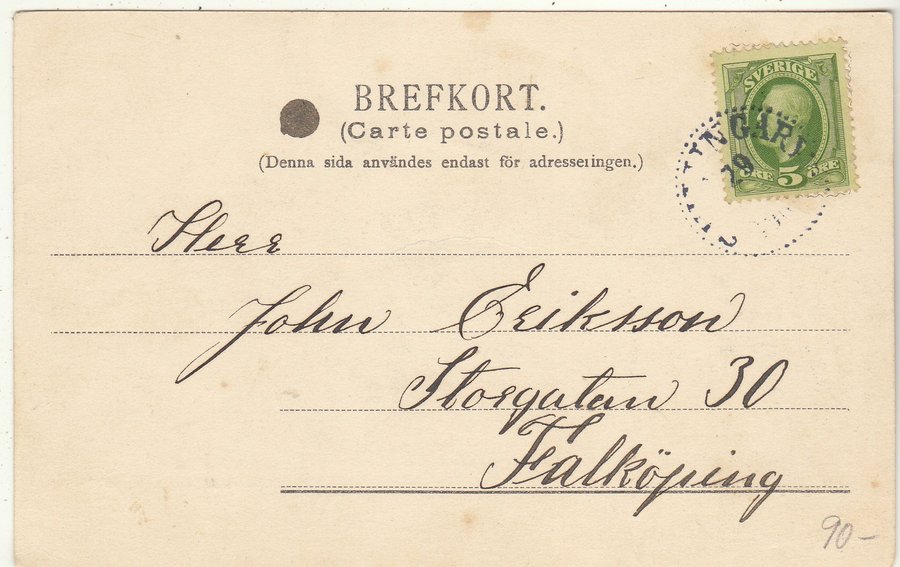 BREFKORT.
(Carte postale.)
(Denna sida användes endast för adresseringen.)
SVERIGE
ÖRE 5 ÖRE
29
Herr
John Eriksson
Storgatan 30
Falköping
90-